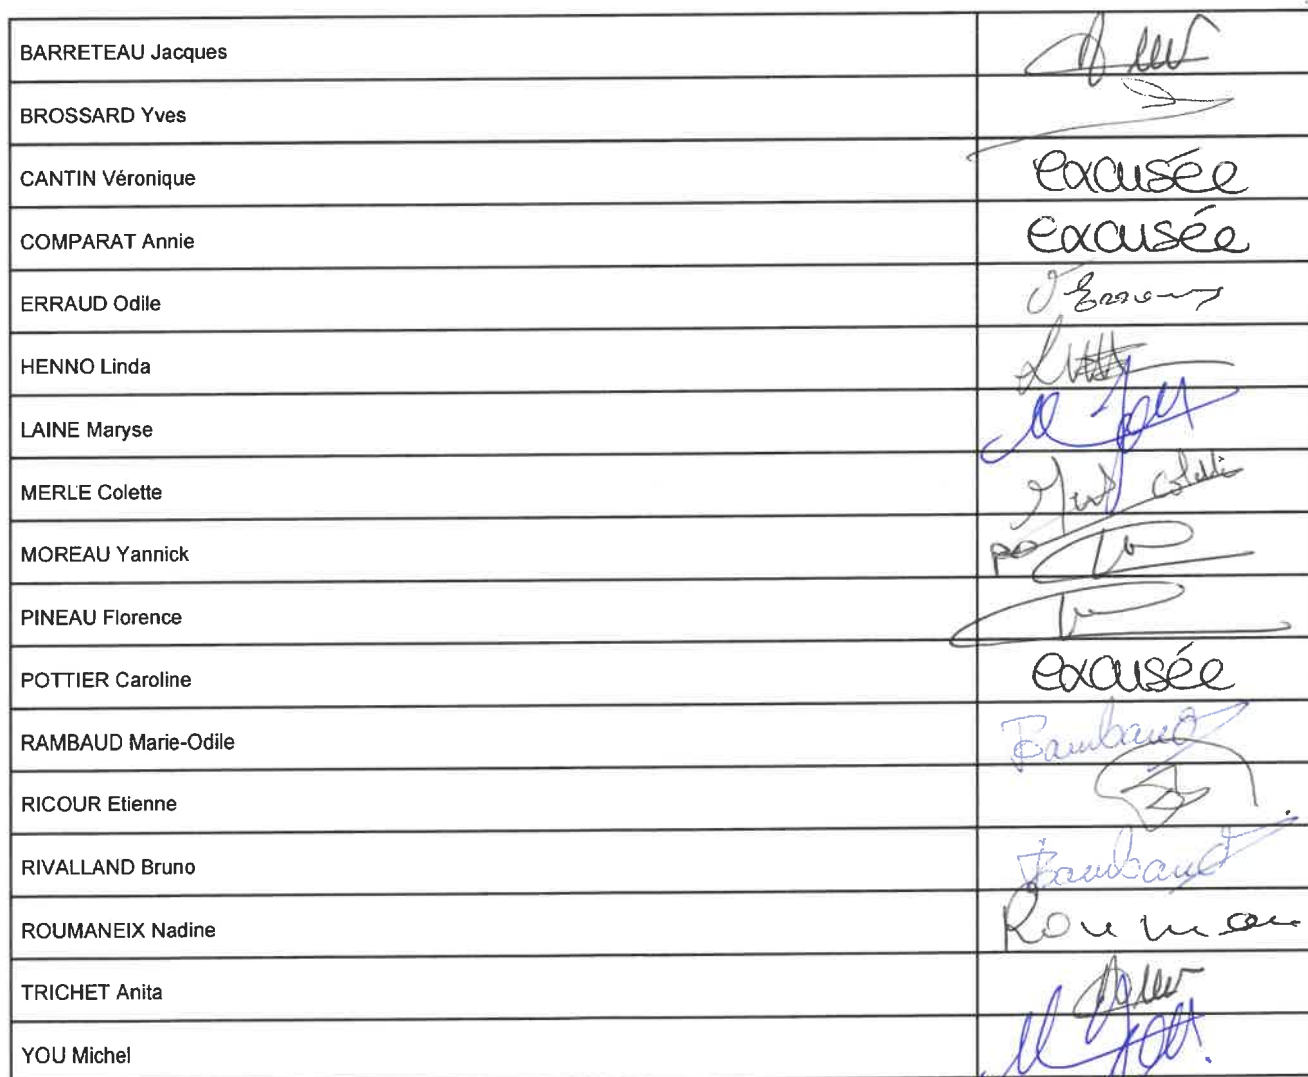 BARRETEAU Jacques
BROSSARD Yves
CANTIN Véronique excusée
COMPARAT Annie excusée
ERRAUD Odile
HENNO Linda
LAINE Maryse
MERLE Colette
MOREAU Yannick po
PINEAU Florence
POTTIER Caroline excusée
RAMBAUD Marie-Odile Rambaud
RICOUR Etienne
RIVALLAND Bruno Rambaud
ROUMANEIX Nadine
TRICHET Anita
YOU Michel